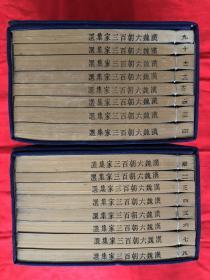 漢魏六朝百三家集選 九
漢魏六朝百三家集選 十
漢魏六朝百三家集選
漢魏六朝百三家集選
漢魏六朝百三家集選
漢魏六朝百三家集選
漢魏六朝百三家集選
漢魏六朝百三家集選
漢魏六朝百三家集選
漢魏六朝百三家集選 二
漢魏六朝百三家集選 三
漢魏六朝百三家集選 四
漢魏六朝百三家集選 五
漢魏六朝百三家集選 六
漢魏六朝百三家集選 七
漢魏六朝百三家集選 八